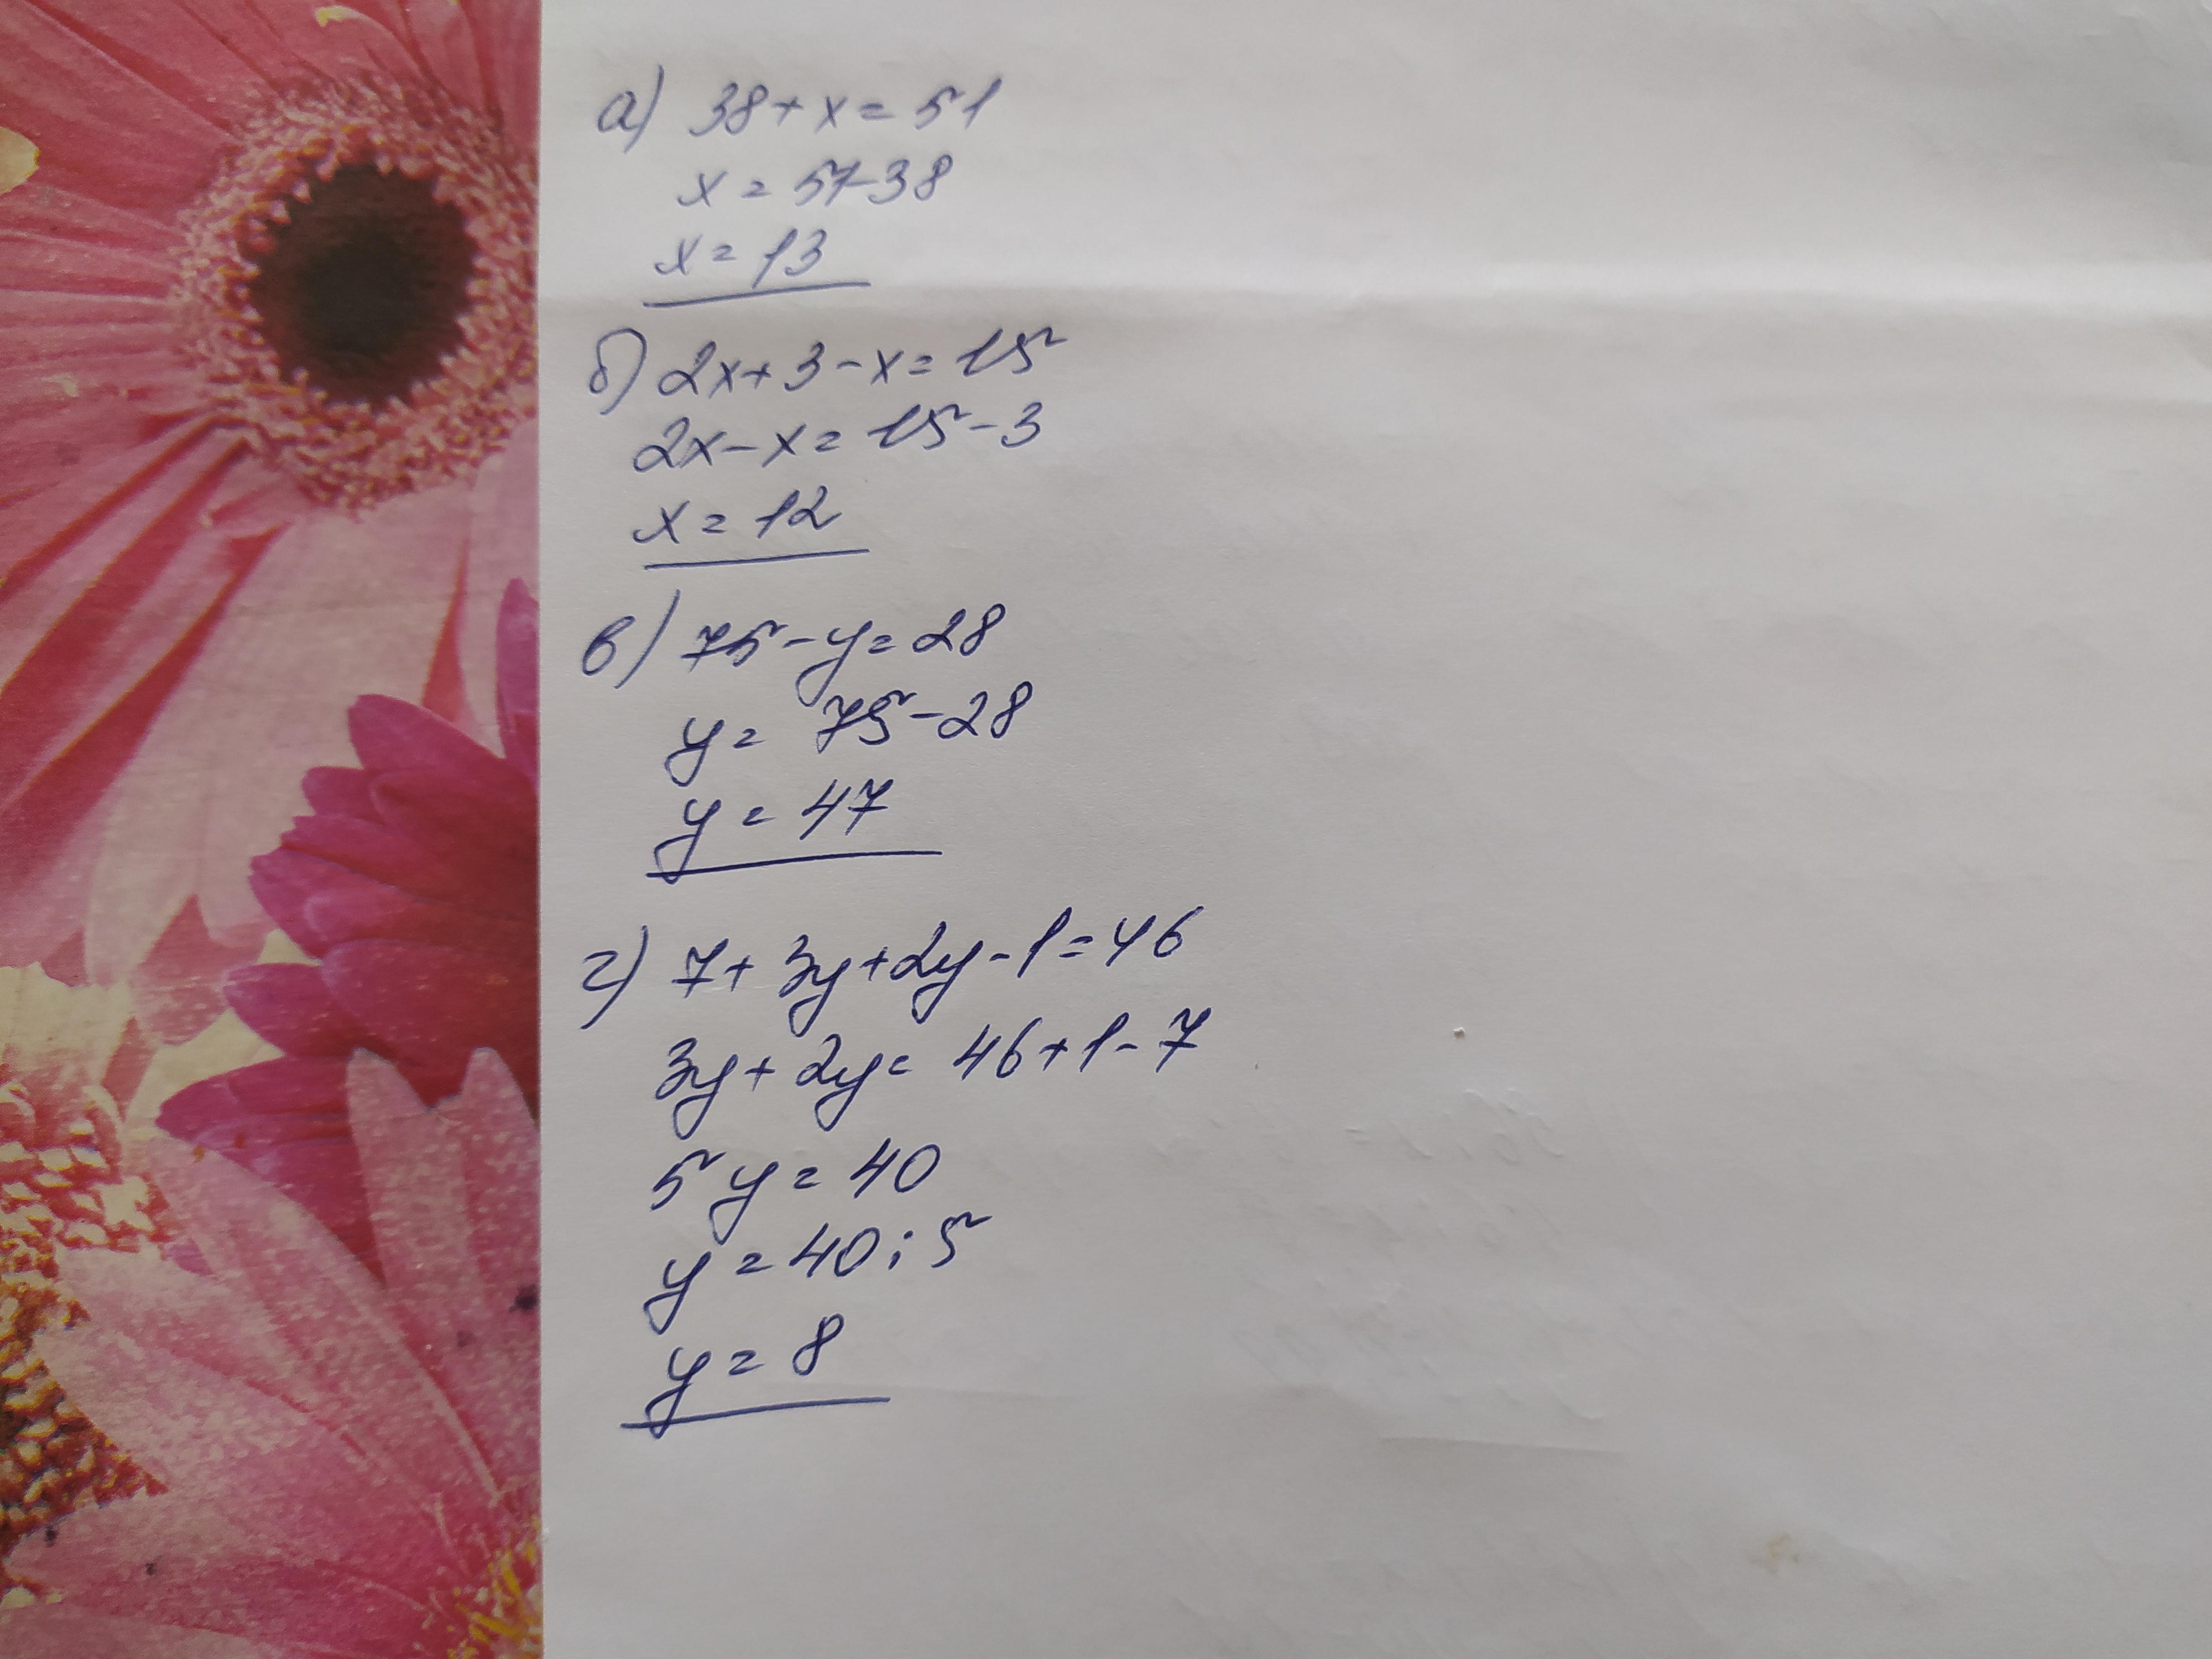 а) 38+x=51
x=51-38
x=13
б) 2x+3-x=15
2x-x=15-3
x=12
в) 75-y=28
y=75-28
y=47
г) 7+3y+2y-1=46
3y+2y=46+1-7
5y=40
y=40:5
y=8